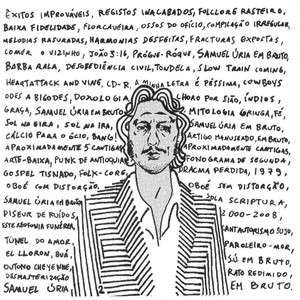 ÊXITOS IMPROVÁVEIS, REGISTOS INACABADOS, FOLCLORE RASTEIRO,
BAIXA FIDELIDADE, FLORCAVEIRA, OSSOS DO OFÍCIO, COMPILAÇÃO IRREGULAR,
MELODIAS RASURADAS, HARMONIAS DESFEITAS, FRACTURAS EXPOSTAS,
COMER O VIZINHO, JOÃO 3:16, PRÓGUE-RÓQUE, SAMUEL ÚRIA EM BRUTO,
BARBA RALA, DESOBEDIÊNCIA CIVIL, TONDELA, SLOW TRAIN COMING,
HEARTATTACK AND VINE, CD-R, A MINHA LETRA É PÉSSIMA, COWBOYS
ODES A BIGODES, DOXOLOGIA HORO POR SIÃO, ÍNDIOS,
GRAÇA, SAMUEL ÚRIA EM BRUTO, MITOLOGIA GRINGA, FÉ,
SOL NA EIRA SOL NA IRA, SAMUEL ÚRIA EM BRUTO,
CÁLCIO PARA O GESO, BANG ARTIGO MANUSEADO, EM BRUTO,
APROXIMADAMENTE 5 CANTIGAS APROXIMADAMENTE CANTIGAS,
ARTE-BAIXA, PUNK DE ANTIQUÁ FONOGRAMA DE SEGUNDA,
GOSPEL TISNADO, FOLK-CORE, DRACMA PERDIDA, 1979,
OBOÉ COM DISTORÇÃO, OBOÉ SEM DISTORÇÃO,
SAMUEL ÚRIA EM BRUTO SOLA SCRIPTURA,
DISEUR DE RUÍDOS, 2000-2008,
ESTEREOFONIA FUNÉREA, ANTIAUTORISMO SUJO,
TÚNEL DO AMOR, PAROLEIRO-MOR,
EL LLORON, BUÁ, SÚ EM BRUTO,
OUTONO CHEYENNE, RATO REDIMIDO,
DESMASTERIZAÇÃO EM BRUTO.
SAMUEL ÚRIA,